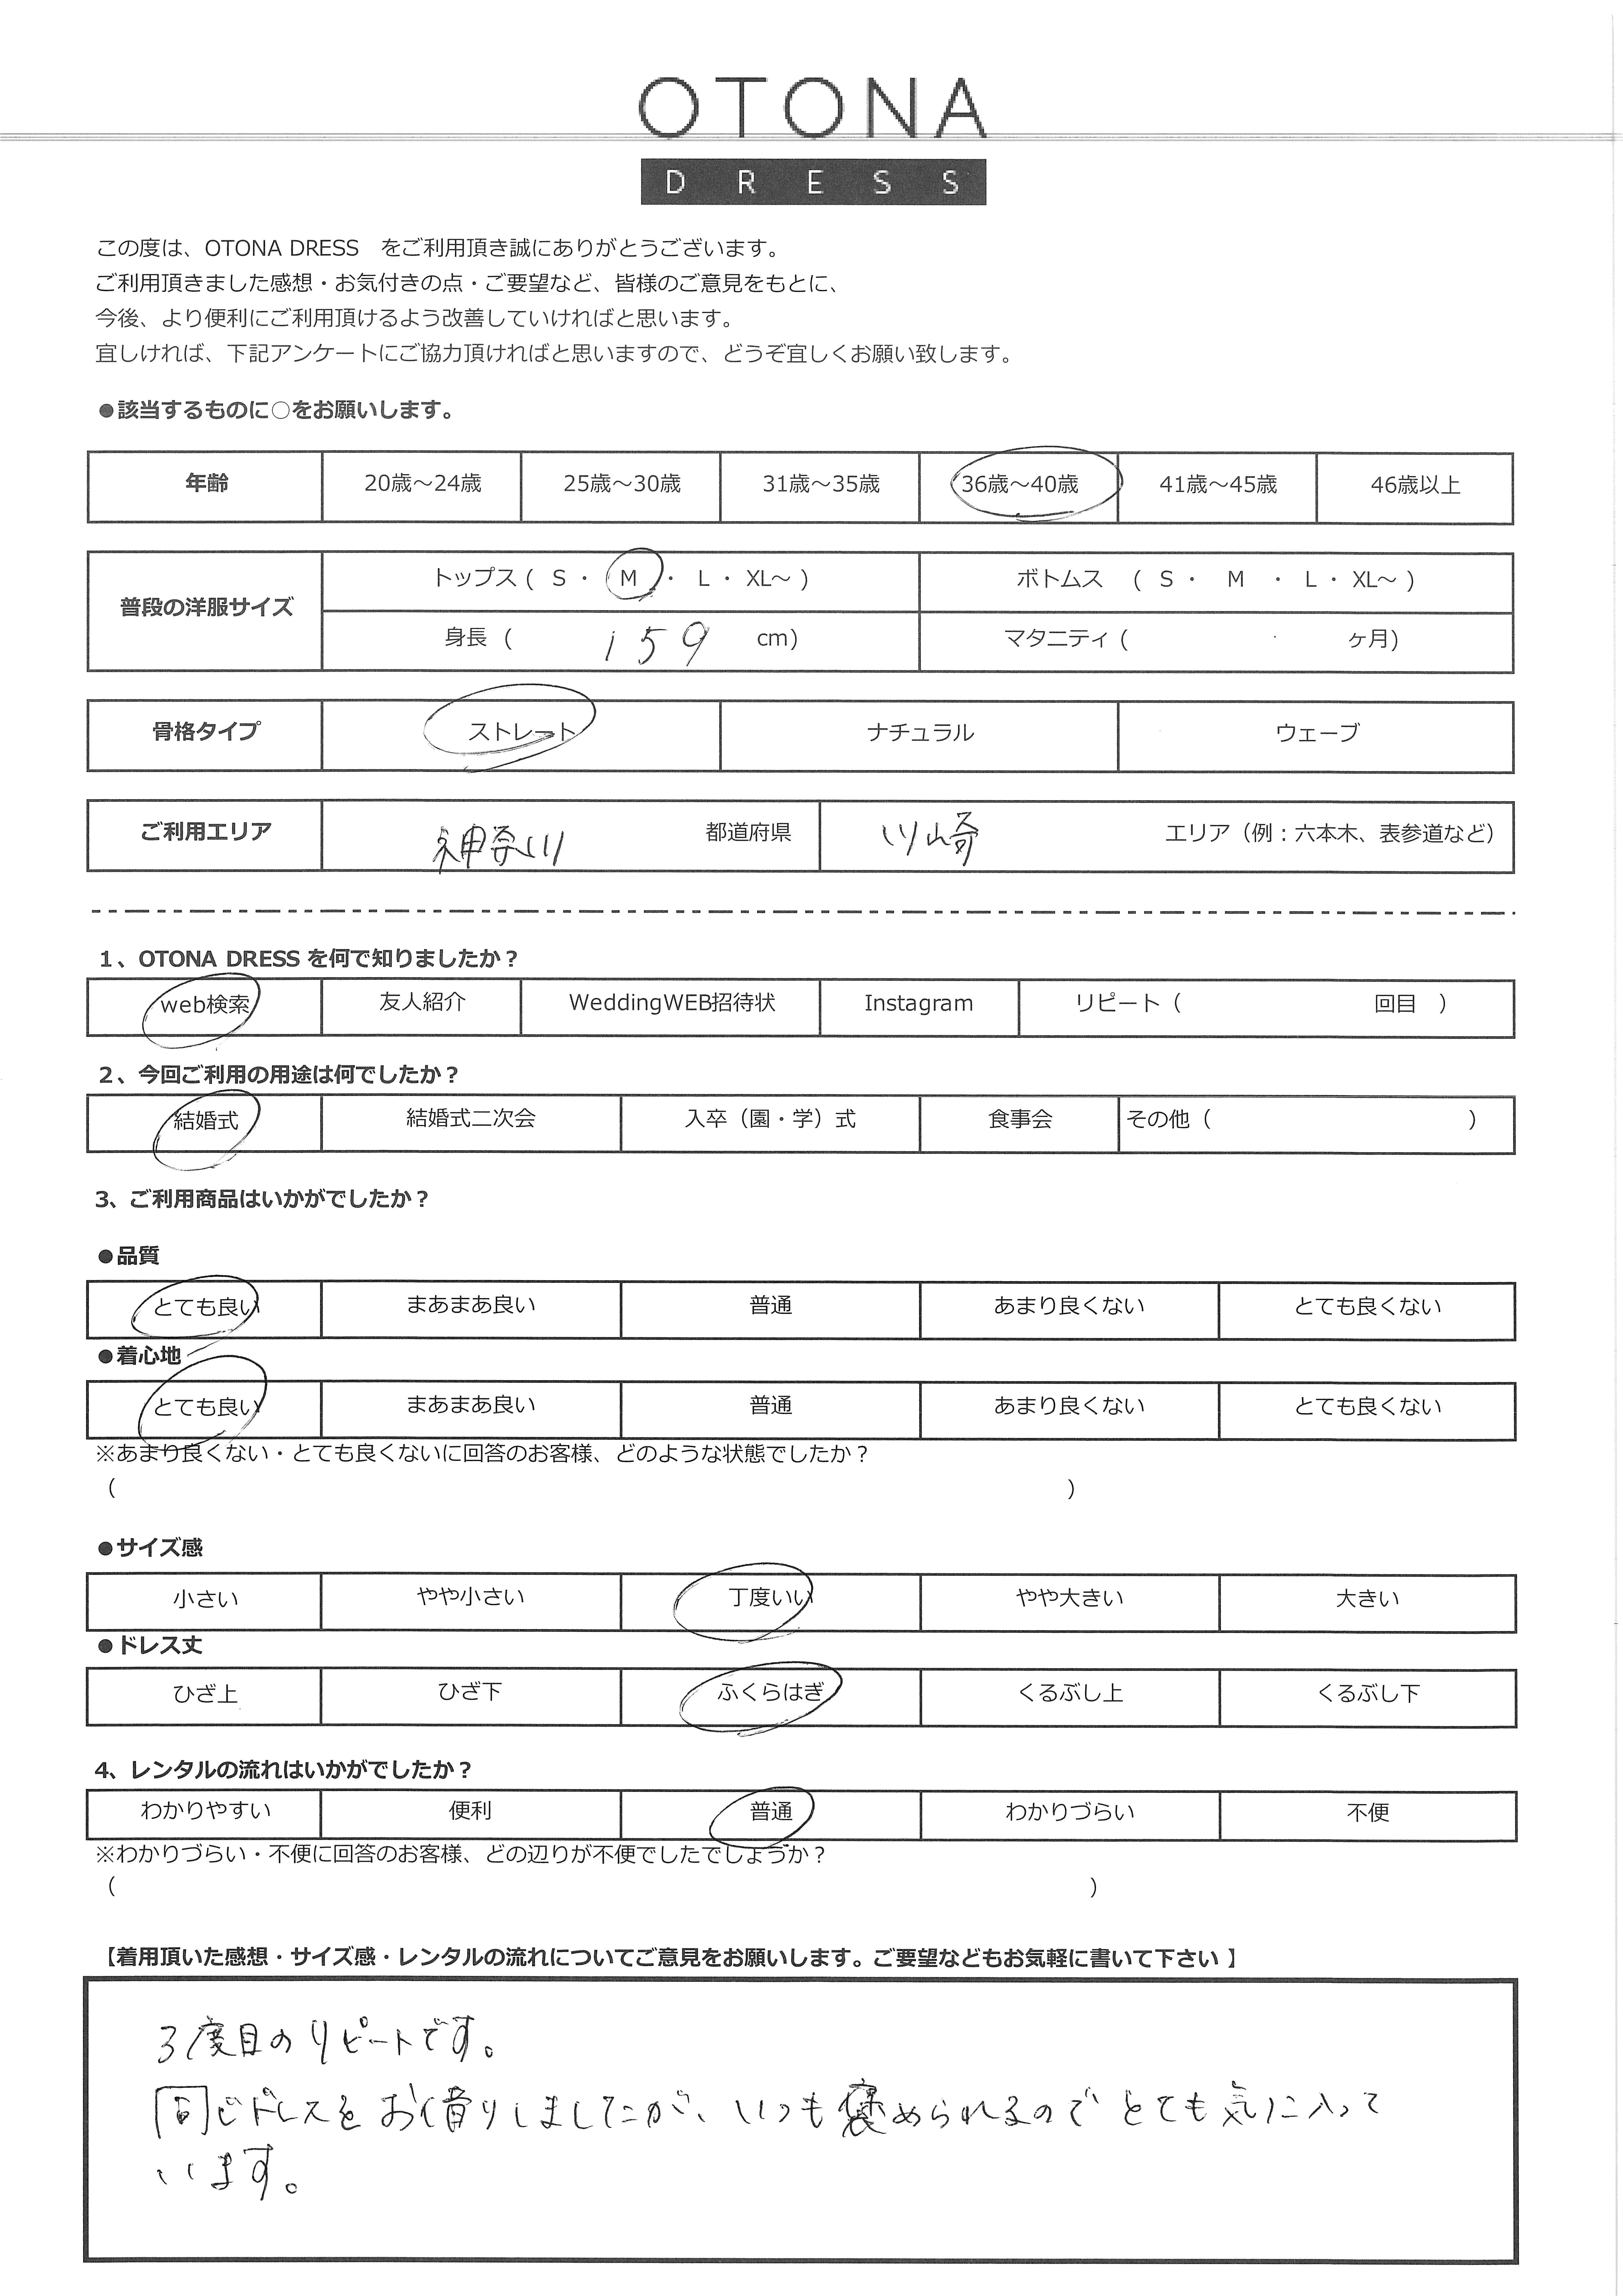 OTONA
DRESS
この度は、OTONA DRESS をご利用頂き誠にありがとうございます。
ご利用頂きました感想・お気付きの点・ご要望など、皆様のご意見をもとに、
今後、より便利にご利用頂けるよう改善していければと思います。
宜しければ、下記アンケートにご協力頂ければと思いますので、どうぞ宜しくお願い致します。
●該当するものに○をお願いします。
年齢 20歳～24歳 25歳～30歳 31歳～35歳 36歳～40歳 41歳～45歳 46歳以上
普段の洋服サイズ トップス ( S ・ M ・ L ・ XL～ ) ボトムス ( S ・ M ・ L ・ XL～ )
身長 ( 159 cm) マタニティ ( ヶ月)
骨格タイプ ストレート ナチュラル ウェーブ
ご利用エリア 神奈川 都道府県 川崎 エリア（例：六本木、表参道など）
1、OTONA DRESS を何で知りましたか？
web検索 友人紹介 WeddingWEB招待状 Instagram リピート（ 回目 ）
2、今回ご利用の用途は何でしたか？
結婚式 結婚式二次会 入卒（園・学）式 食事会 その他（ ）
3、ご利用商品はいかがでしたか？
●品質
とても良い まあまあ良い 普通 あまり良くない とても良くない
●着心地
とても良い まあまあ良い 普通 あまり良くない とても良くない
※あまり良くない・とても良くないに回答のお客様、どのような状態でしたか？
（ ）
●サイズ感
小さい やや小さい 丁度いい やや大きい 大きい
●ドレス丈
ひざ上 ひざ下 ふくらはぎ くるぶし上 くるぶし下
4、レンタルの流れはいかがでしたか？
わかりやすい 便利 普通 わかりづらい 不便
※わかりづらい・不便に回答のお客様、どの辺りが不便でしたでしょうか？
（ ）
【着用頂いた感想・サイズ感・レンタルの流れについてご意見をお願いします。ご要望などもお気軽に書いて下さい 】
3度目のリピートです。
同じドレスをお借りしましたが、いつも褒められるのでとても気に入って
います。